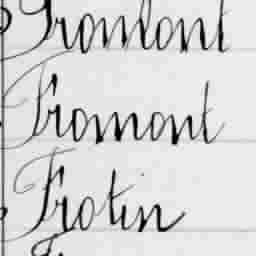 Fromont
Fromont
Frotin